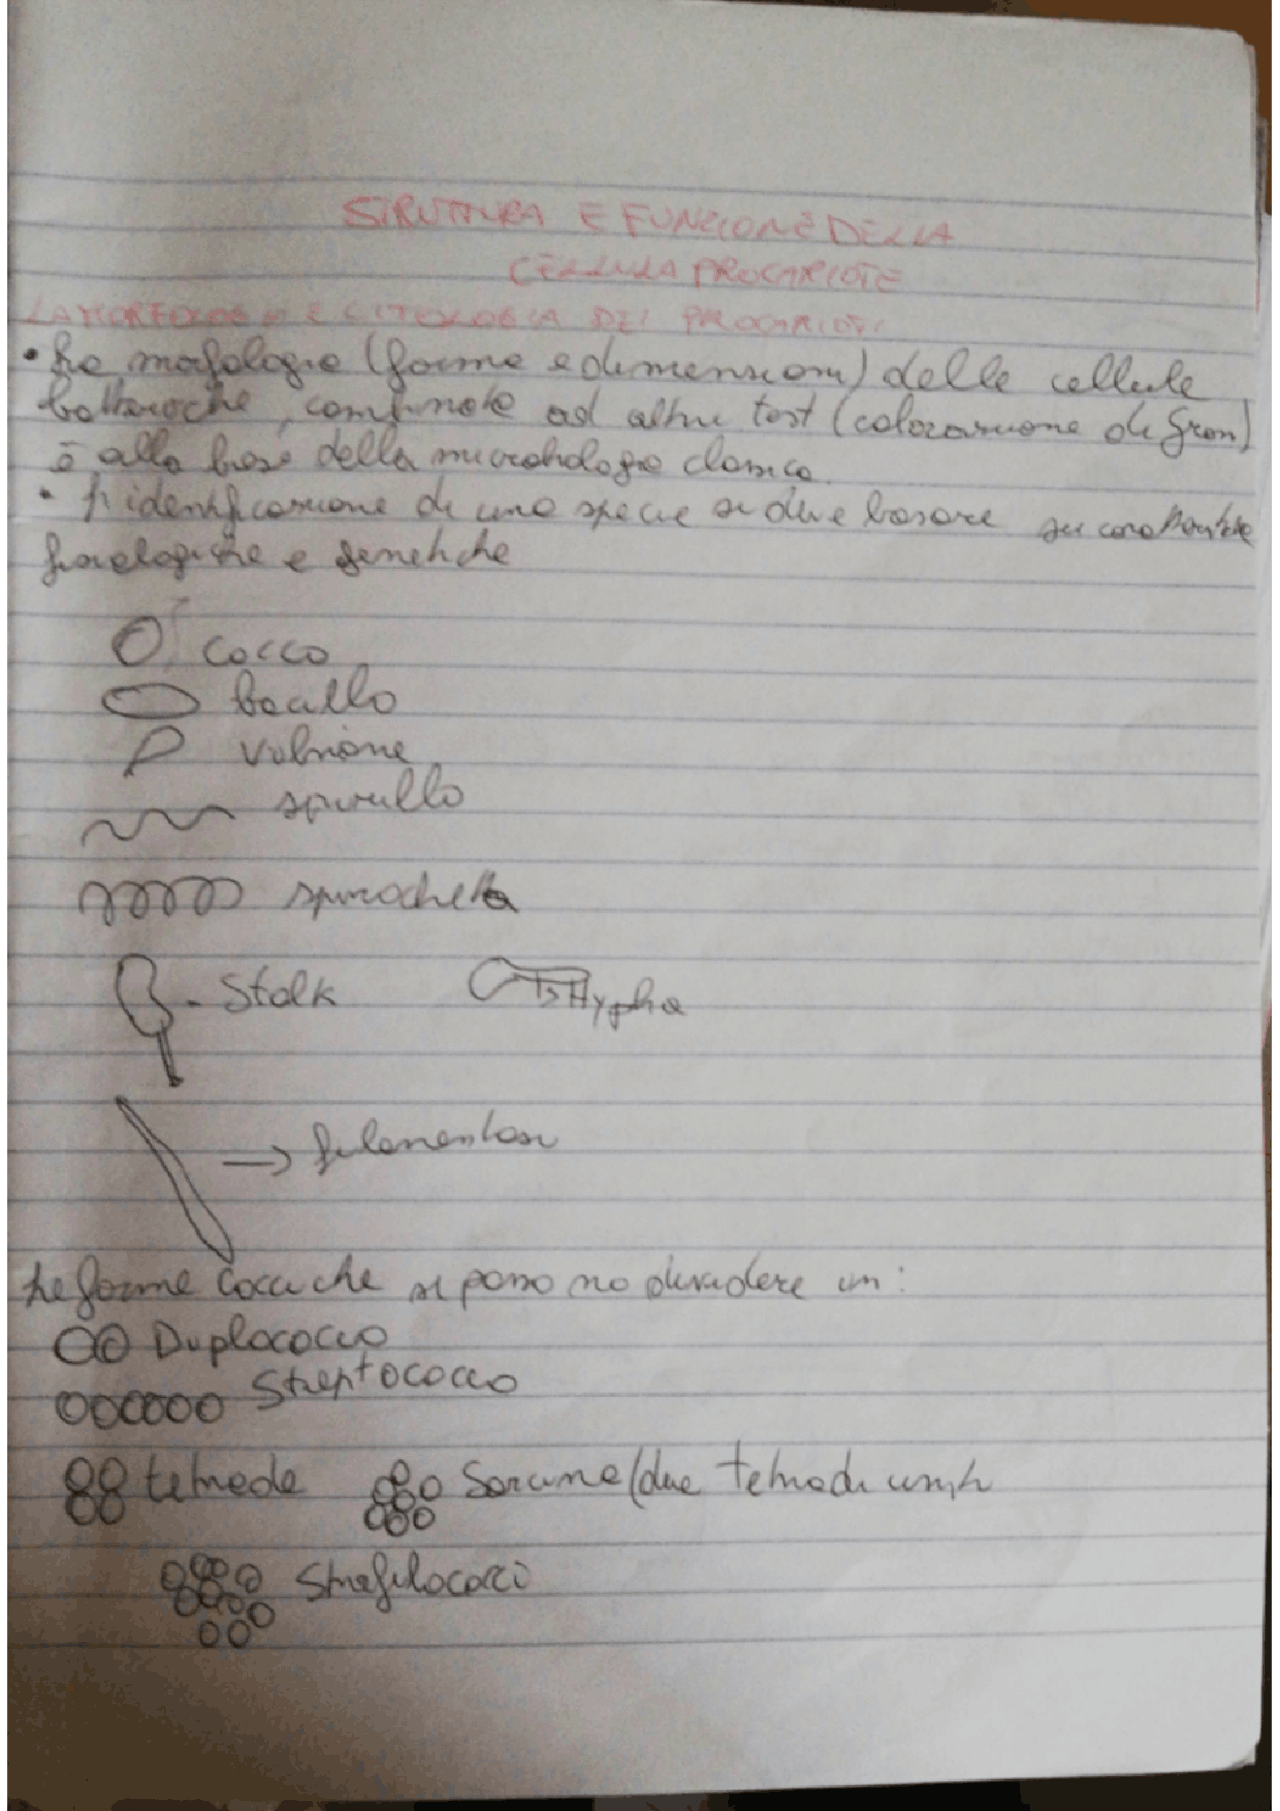 STRUTTURA E FUNZIONE DELLA
CELLULA PROCARIOTE
LA MORFOLOGIA E CITOLOGIA DEI PROCARIOTI
• La morfologia (forma e dimensioni) delle cellule
batteriche, combinata ad altri test (colorazione di Gram)
è alla base della microbiologia classica.
• L'identificazione di una specie si deve basare su caratteristiche
fisiologiche e genetiche
cocco
bacillo
vibrione
spirillo
spirocheta
- Stalk
Hypha
→ filamentosi
Le forme cocciche si possono dividere in:
Diplococco
Streptococco
tetrade
Sarcina (due tetradi uniti
Strafilococci